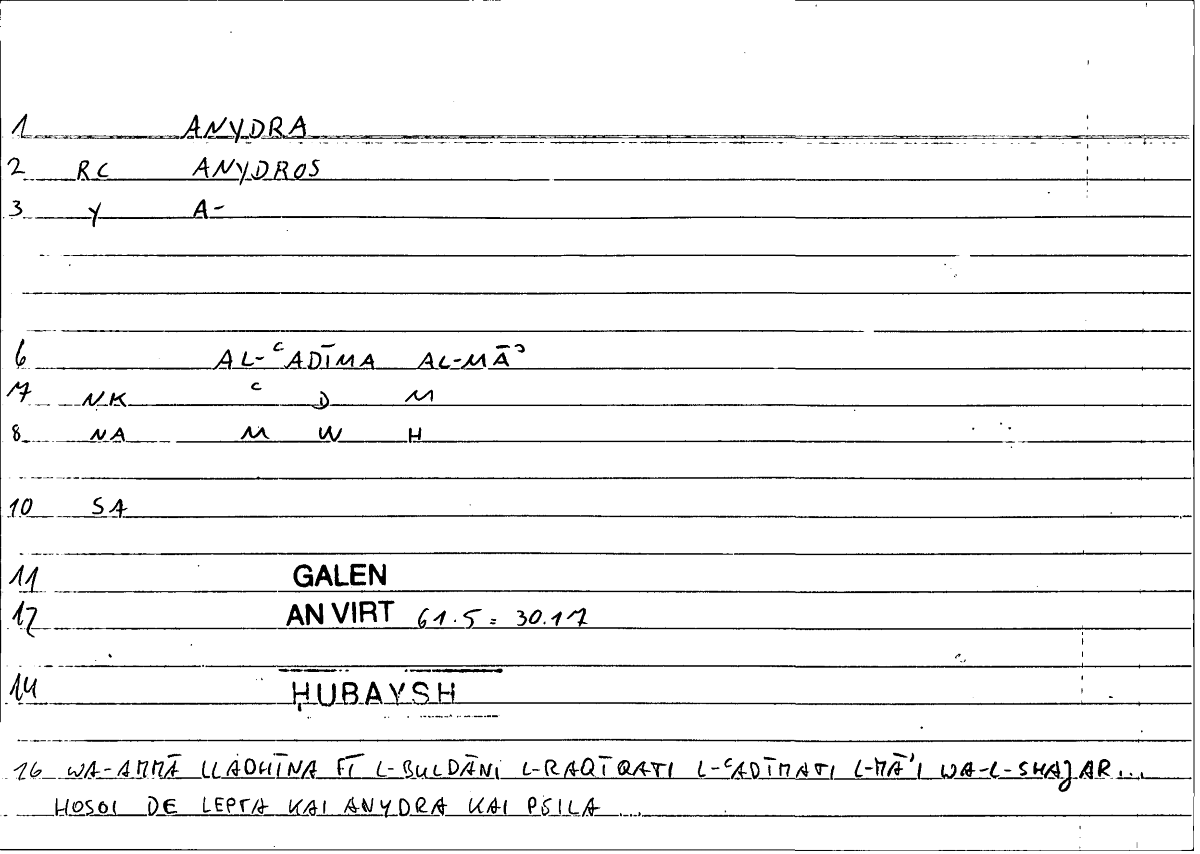 1 ANYDRA
2 RC ANYDROS
3 Y A-
6 AL-ʿADĪMA AL-MĀʾ
7 NK ʿ D M
8 NA M W H
10 SA
11 GALEN
12 AN VIRT 61.5 = 30.17
14 ḤUBAYSH
16 WA-AMMĀ LLADHĪNA FĪ L-BULDĀNI L-RAQĪQATI L-ʿADĪMATI L-MĀʾI WA-L-SHAJAR...
HOSOI DE LEPTA KAI ANYDRA KAI PSILA ...